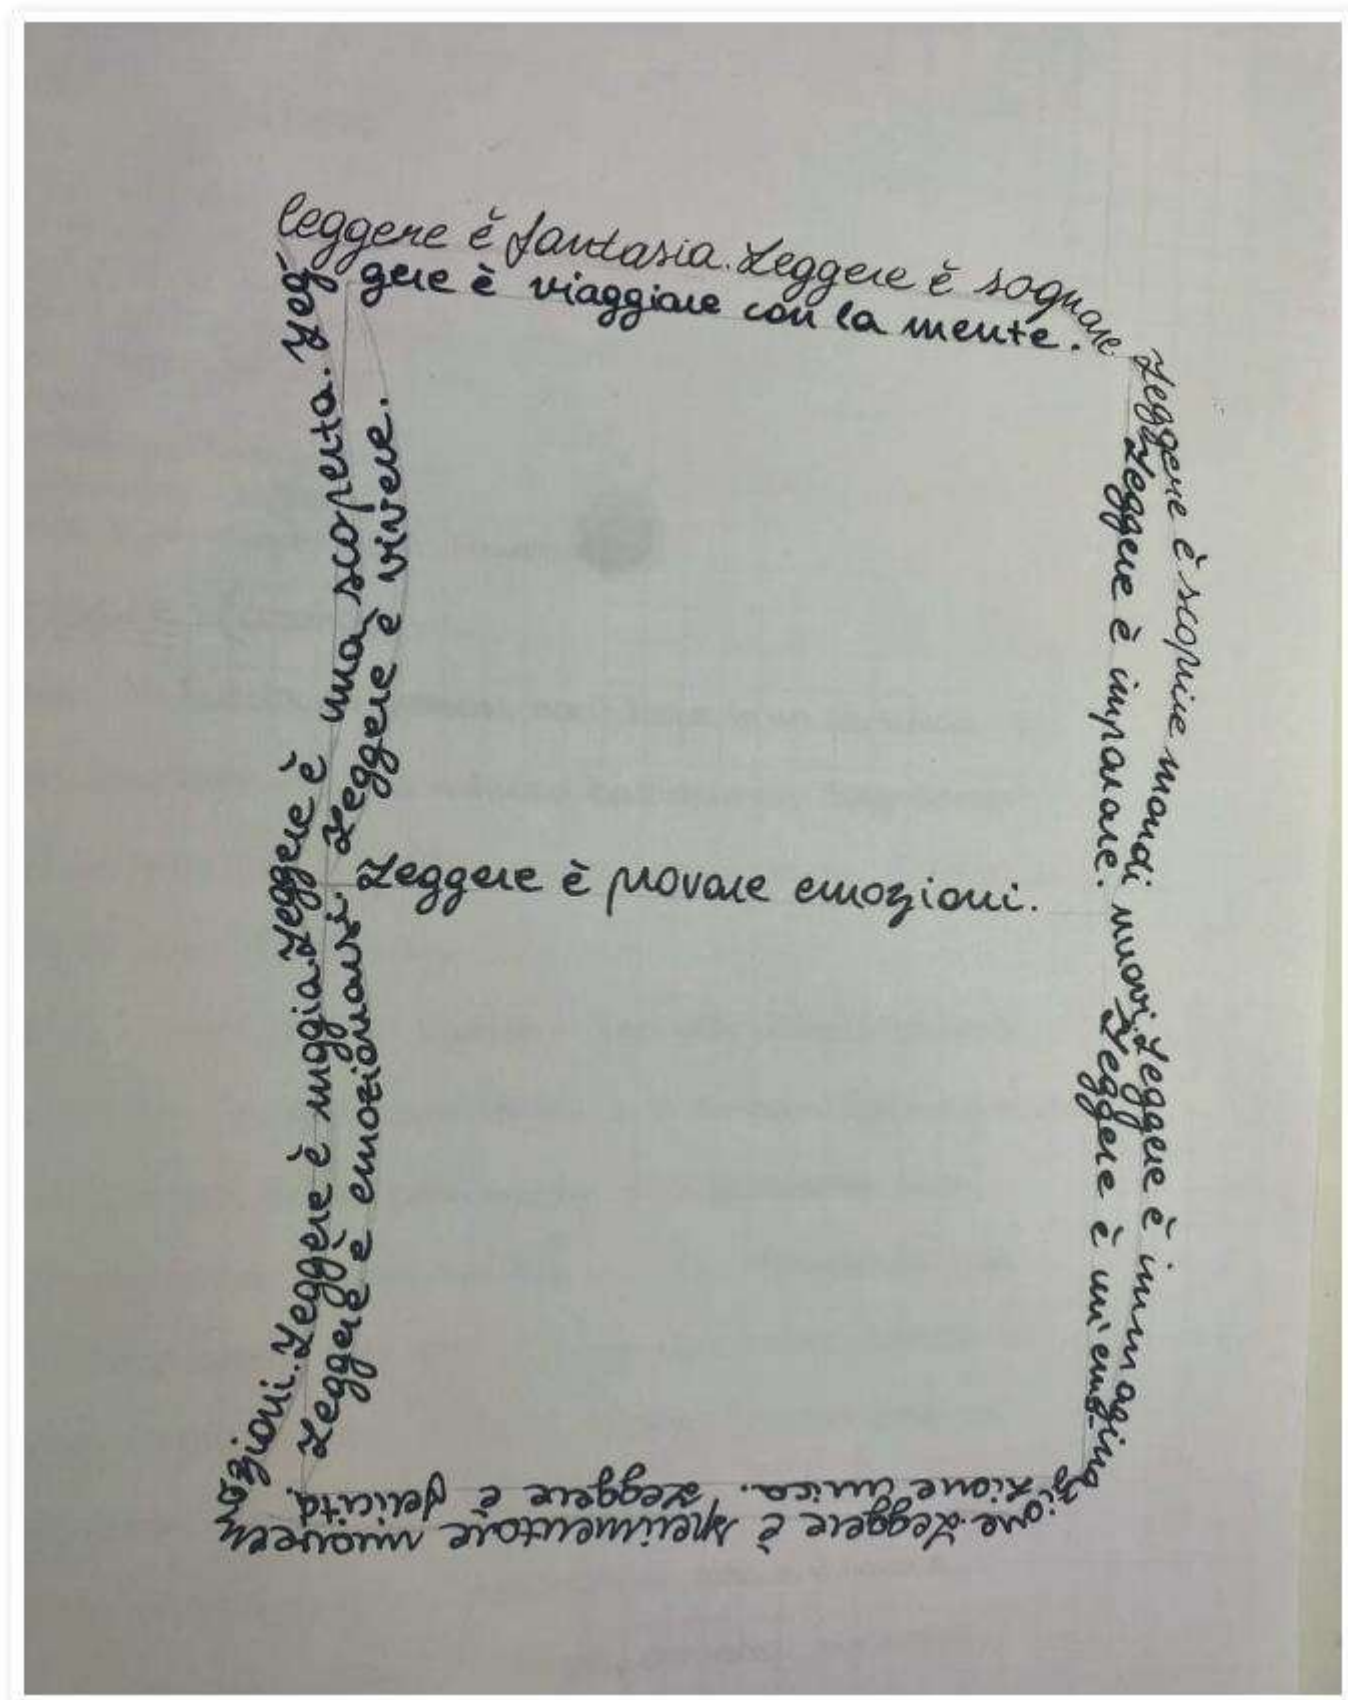 leggere è fantasia. Leggere è sognare.
Leggere è scoprire mondi nuovi. Leggere è immaginaz
ione. Leggere è sperimentare nuove em
ozioni. Leggere è . Leggere è una scoperta. Leg-
gere è viaggiare con la mente.
Leggere è imparare. Leggere è un'emo-
zione unica. Leggere è felicità.
Leggere è emozionarsi. Leggere è vivere.
Leggere è provare emozioni.